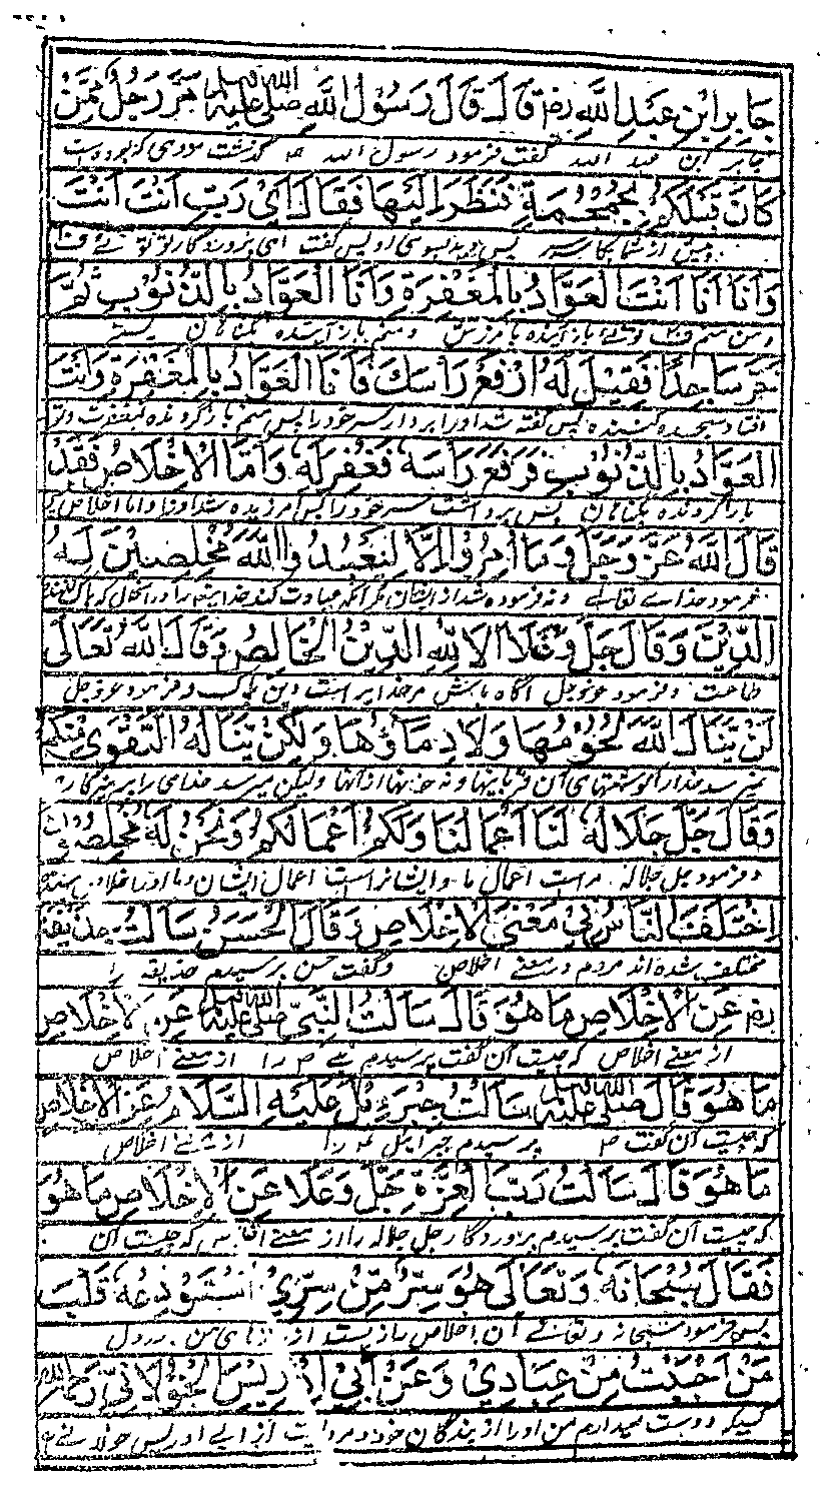 جَابِرِ ابْنِ عَبْدِ اللَّهِ رض قَالَ قَالَ رَسُوْلُ اللَّهِ صَلَّى اللهُ عَلَيْهِ وَسَلَّمَ مَرَّ رَجُلٌ مِمَّنْ
جابر ابن عبد الله گفت فرمود رسول الله ص گذشت مردی که بوده است
كَانَ قَبْلَكُمْ بِجُمْجُمَةٍ فَنَظَرَ إِلَيْهَا فَقَالَ أَيْ رَبِّ أَنْتَ أَنْتَ
پیش از شما بکاسه سر پس دید بسوی او پس گفت ای پروردگار تو توئی
وَأَنَا أَنَا أَنْتَ الْعَوَّادُ بِالْمَغْفِرَةِ وَأَنَا الْعَوَّادُ بِالذُّنُوْبِ ثُمَّ
و من منم توئی باز آینده بامرزش و منم باز آینده بگناهان پستر
خَرَّ سَاجِدًا فَقِيْلَ لَهُ ارْفَعْ رَأْسَكَ فَأَنَا الْعَوَّادُ بِالْمَغْفِرَةِ وَأَنْتَ
افتاد سجده کننده پس گفته شد اورا بردار سر خود را پس منم باز گردنده بمغفرت و تو
الْعَوَّادُ بِالذُّنُوْبِ فَرَفَعَ رَأْسَهُ فَغُفِرَ لَهُ وَأَمَّا الْإِخْلَاصُ فَقَدْ
باز گردنده بگناهان پس برداشت سر خود را پس آمرزیده شد اورا و اما اخلاص
قَالَ اللَّهُ عَزَّ وَجَلَّ وَمَا أُمِرُوْا إِلَّا لِيَعْبُدُوا اللَّهَ مُخْلِصِيْنَ لَهُ
فرمود خدای تعالی و نه فرموده شد ازیشان مگر آنکه عبادت کنند خدایتعالی را در آنحال که پاک کنند
الدِّيْنَ وَقَالَ جَلَّ وَعَلَا أَلَا لِلَّهِ الدِّيْنُ الْخَالِصُ وَقَالَ اللَّهُ تَعَالَى
طاعت و فرمود عزوجل آگاه باش مر خدایراست دین پاک و فرمود عزوجل
لَنْ يَنَالَ اللَّهَ لُحُوْمُهَا وَلَا دِمَاؤُهَا وَلَكِنْ يَنَالُهُ التَّقْوَى مِنْكُمْ
نمیرسد خدارا گوشتهای آن قربانیها و نه خونها ازآنها ولیکن میرسد خدای را پرهیزگاری
وَقَالَ جَلَّ جَلَالُهُ لَنَا أَعْمَالُنَا وَلَكُمْ أَعْمَالُكُمْ وَنَحْنُ لَهُ مُخْلِصُوْنَ
و فرمود جل جلاله مراست اعمال ما و ایشانراست اعمال ایشان و ما اورا اخلاص
اِخْتَلَفَ النَّاسُ فِيْ مَعْنَى الْإِخْلَاصِ وَقَالَ الْحَسَنُ سَأَلْتُ حُذَيْفَةَ
مختلف شده اند مردم در معنی اخلاص و گفت حسن پرسیدم حذیفه را
رض عَنِ الْإِخْلَاصِ مَا هُوَ قَالَ سَأَلْتُ النَّبِيَّ صَلَّى اللهُ عَلَيْهِ وَسَلَّمَ عَنِ الْإِخْلَاصِ
از معنی اخلاص که چیست آن گفت پرسیدم نبی ص را از معنی اخلاص
مَا هُوَ قَالَ صَلَّى اللهُ عَلَيْهِ وَسَلَّمَ سَأَلْتُ جِبْرَئِيْلَ عَلَيْهِ السَّلَامُ عَنِ الْإِخْلَاصِ
که چیست آن گفت ص پرسیدم جبرائیل ع را از معنی اخلاص
مَا هُوَ قَالَ سَأَلْتُ رَبَّ الْعِزَّةِ جَلَّ وَعَلَا عَنِ الْإِخْلَاصِ مَا هُوَ
که چیست آن گفت پرسیدم پروردگار جل جلاله را از معنی اخلاص که چیست آن
فَقَالَ سُبْحَانَهُ وَتَعَالَى هُوَ سِرٌّ مِّنْ سِرِّيْ أَسْتَوْدِعُهُ قَلْبَ
پس فرمود سبحانه و تعالی آن اخلاص رازیست از رازهای من در دل
مَنْ أَحْبَبْتُ مِنْ عِبَادِيْ وَعَنْ أَبِيْ إِدْرِيْسَ الْخَوْلَانِيِّ رَحِمَهُ اللهُ
کسیکه دوست میدارم من اورا از بندگان خود و مرویست از ابی ادریس خولانی